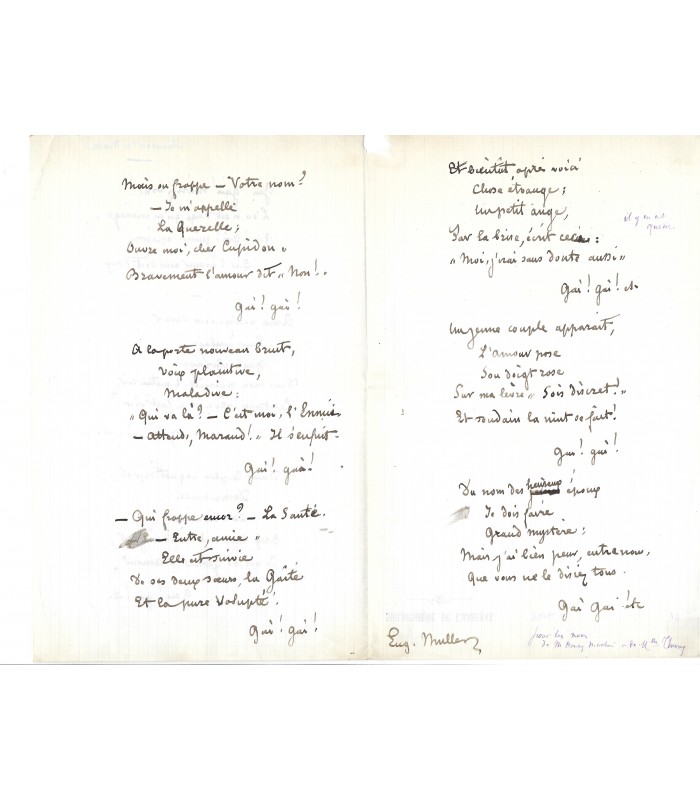 Mais on frappe — Votre nom?
— Je m'appelle
La Querelle;
Ouvre moi, cher Cupidon »
Bravement l'amour dit « Non! »
Gai! gai!
A la porte nouveau bruit,
Voix plaintive,
Maladive:
« Qui va là? — C'est moi, l'Ennui.
— Attends, Maraud! » Il s'enfuit.
Gai! gai!
— Qui frappe encor? — La Santé.
— Entre, amie »
Elle est suivie
De ses deux sœurs, la Gaîté
Et la pure Volupté.
Gai! gai!
Et bientôt après voici
Chose étrange;
Un petit ange,
Sur la brise, écrit ceci:
« Moi, j'irai sans doute aussi »
Gai! gai! etc
Un jeune couple apparait,
L'amour pose
Son doigt rose
Sur ma lèvre « Sois discret! »
Et soudain la nuit se fait!
Gai! gai!
Du nom des heureux époux
Je dois faire
Grand mystère;
Mais j'ai bien peur, entre nous,
Que vous ne le disiez tous.
Gai Gai! etc
Eug. Muller
pour les noces
de M Henry